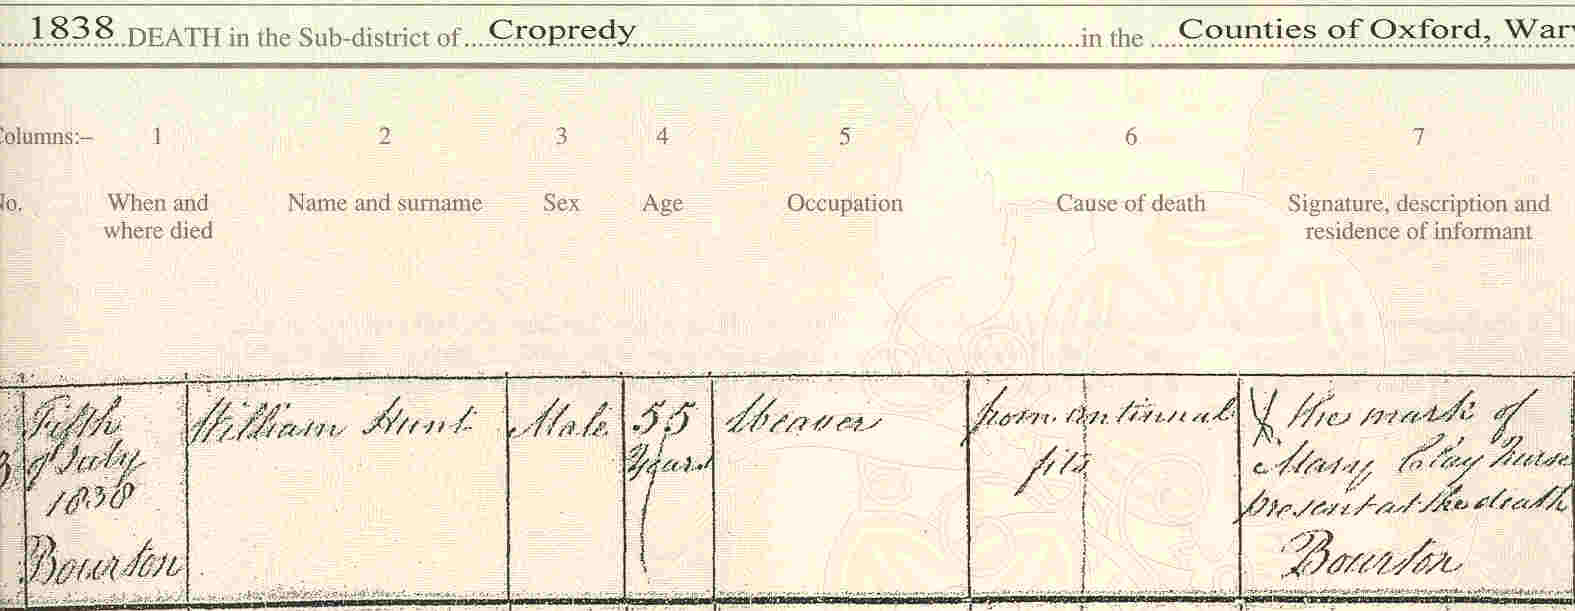 1838 DEATH in the Sub-district of Cropredy in the Counties of Oxford, Warw
Columns:– 1 2 3 4 5 6 7
No. When and where died Name and surname Sex Age Occupation Cause of death Signature, description and residence of informant
Fifth of July 1838 Bourton
William Hunt
Male
55 Years
Weaver
from continual
fits
X The mark of
Mary Clay Nurse
present at the death
Bourton